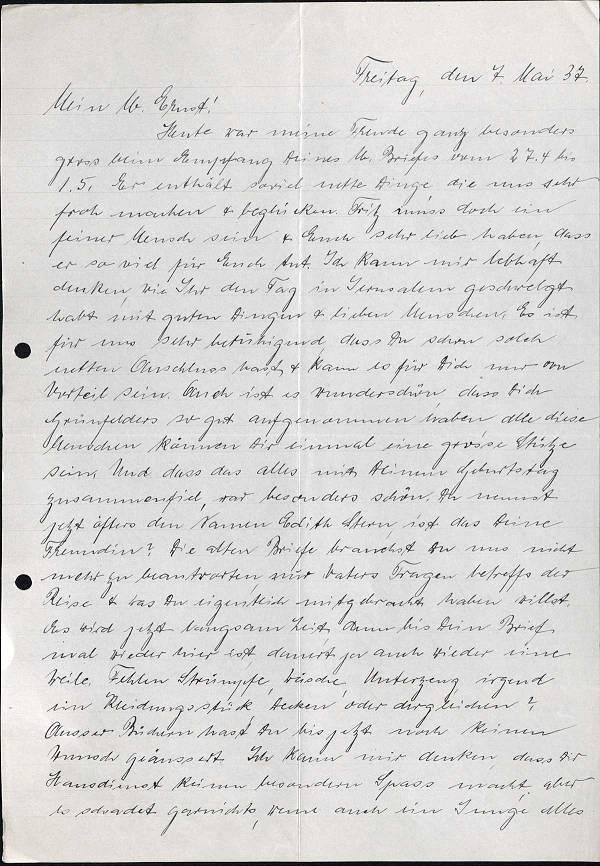 Freitag, den 7. Mai 37.
Mein lb. Ernst!
Heute war meine Freude ganz besonders
gross beim Empfang Deines lb. Briefes vom 27.4 bis
1.5. Er enthält soviel nette Dinge die uns sehr
froh machen & beglücken. Fritz muss doch ein
feiner Mensch sein & Euch sehr lieb haben, dass
er so viel für Euch tut. Ich kann mir lebhaft
denken, wie Ihr den Tag in Jerusalem geschwelgt
habt mit guten Dingen & lieben Menschen. Es ist
für uns sehr beruhigend, dass Du schon solch
netten Anschluss hast & kann es für Dich nur von
Vorteil sein. Auch ist es wunderschön, dass Dich
Grünfelders so gut aufgenommen haben alle diese
Menschen können Dir einmal eine grosse Stütze
sein. Und dass das alles mit Deinem Geburtstag
zusammenfiel, war besonders schön. Du nennst
jetzt öfters den Namen Edith Stern, ist das Deine
Freundin? Die alten Briefe brauchst Du uns nicht
mehr zu beantworten, nur Vaters Fragen betreffs der
Reise & was Du eigentlich mitgebracht haben willst.
Es wird jetzt langsam Zeit, denn bis Dein Brief
mal wieder hier ist dauert ja auch wieder eine
Weile. Fehlen Strümpfe, Wäsche, Unterzeug irgend
ein Kleidungsstück Decken oder dergleichen?
Ausser Büchern hast Du bis jetzt noch keinen
Wunsch geäussert. Ich kann mir denken, dass Dir
Hausdienst keinen besondern Spass macht, aber
es schadet garnichts, wenn auch ein Junge alles